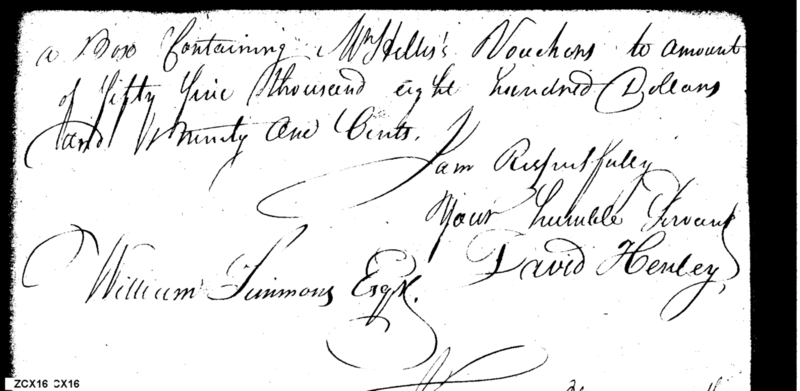 a Box Containing Mr Hillis's Vouchers to amount
of fifty five thousand eight hundred Dollars
and Ninety One Cents.
I am Respectfully
Your humble Servant
David Henley
William Simmons Esqr.
ZCX16 CX16